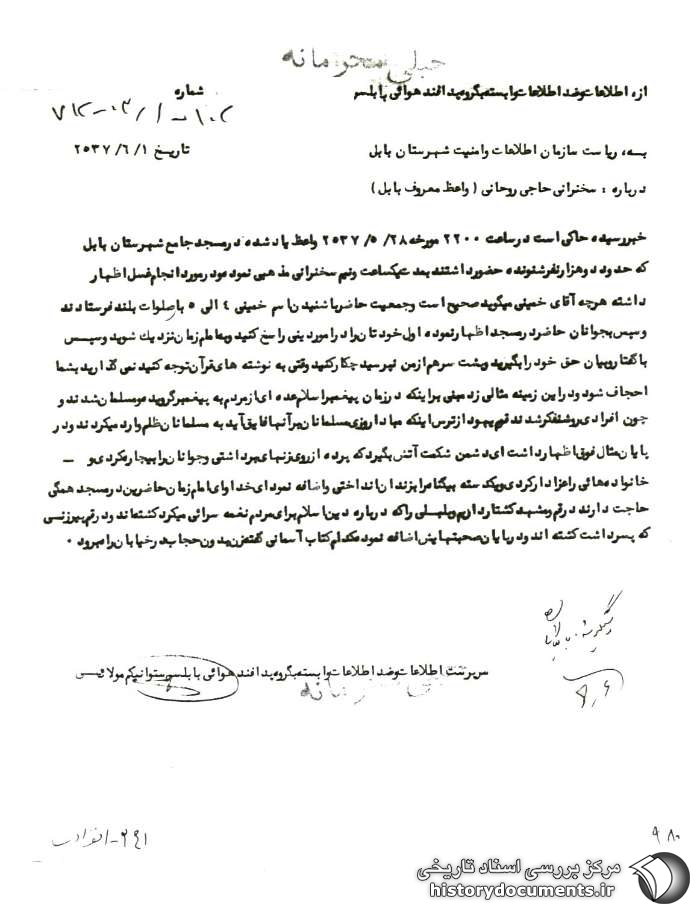 خیلی محرمانه
از، اطلاعات وضد اطلاعات وابسته بگروه پدافند هوائی بابلسر
شماره
به، ریاست سازمان اطلاعات وامنیت شهرستان بابل
تاریخ ۲۵۳۷/۶/۱
درباره : سخنرانی حاجی روحانی ( واعظ معروف بابل )
خبر رسیده حاکی است در ساعت ۲۲۰۰ مورخه ۲۵۳۷/۵/۲۸ واعظ یاد شده در مسجد جامع شهرستان بابل
که حدود دو هزار نفر شنونده حضور داشتند بمدت یکساعت ونیم سخنرانی مذهبی نمود ودر مورد انجام غسل اظهار
داشته هرچه آقای خمینی میگوید صحیح است وجمعیت حاضر باشنیدن اسم خمینی ۴ الی ۵ بار صلوات بلند فرستادند
وسپس بجوانان حاضر در مسجد اظهار نموده اول خودتان را در امور دینی راسخ کنید وبه امام زمان نزدیك شوید وسپس
با گفتار وبیان حق خود را بگیرید وپشت سرهم از من نپرسید چکار کنید وقتی به نوشته های قرآن توجه کنید نمی گذارید بشما
اجحاف شود ودر این زمینه مثالی زد مبنی بر اینکه در زمان پیغمبر اسلام عده ای از مردم به پیغمبر گروید ه ومسلمان شدند و
چون افرادی روشنفکر شدند قوم یهود از ترس اینکه مبادا روزی مسلمانان بر آنها فایق آید به مسلمانان ظلم وارد میکردند ودر
پایان مثال فوق اظهار داشت ای دشمن شکمت آتش بگیرد که پرده از روی زنهای برداشتی وجوانان را بیچاره کردی و ـ
خانواده هائی را عزادار کردی ویکدسته بیگناه را بزندان انداختی واضافه نمود ای خدا وای امام زمان حاضرین در مسجد همگی
حاجت دارند در قم ومشهد کشتار داریم وبلبلی را که درباره دین اسلام برای مردم نغمه سرائی میکرد کشته اند ودر قم پیرزنی
که پسر داشت کشته اند ودر پایان صحبتهایش اضافه نمود کدام کتاب آسمانی گفته زن بدون حجاب در خیابان راه برود ۰
سرپرست اطلاعات وضد اطلاعات وابسته بگروه پدافند هوائی بابلسر ستوانیکم مولائی
خیلی محرمانه
۹۸۰
مرکز بررسی اسناد تاریخی
historydocuments.ir